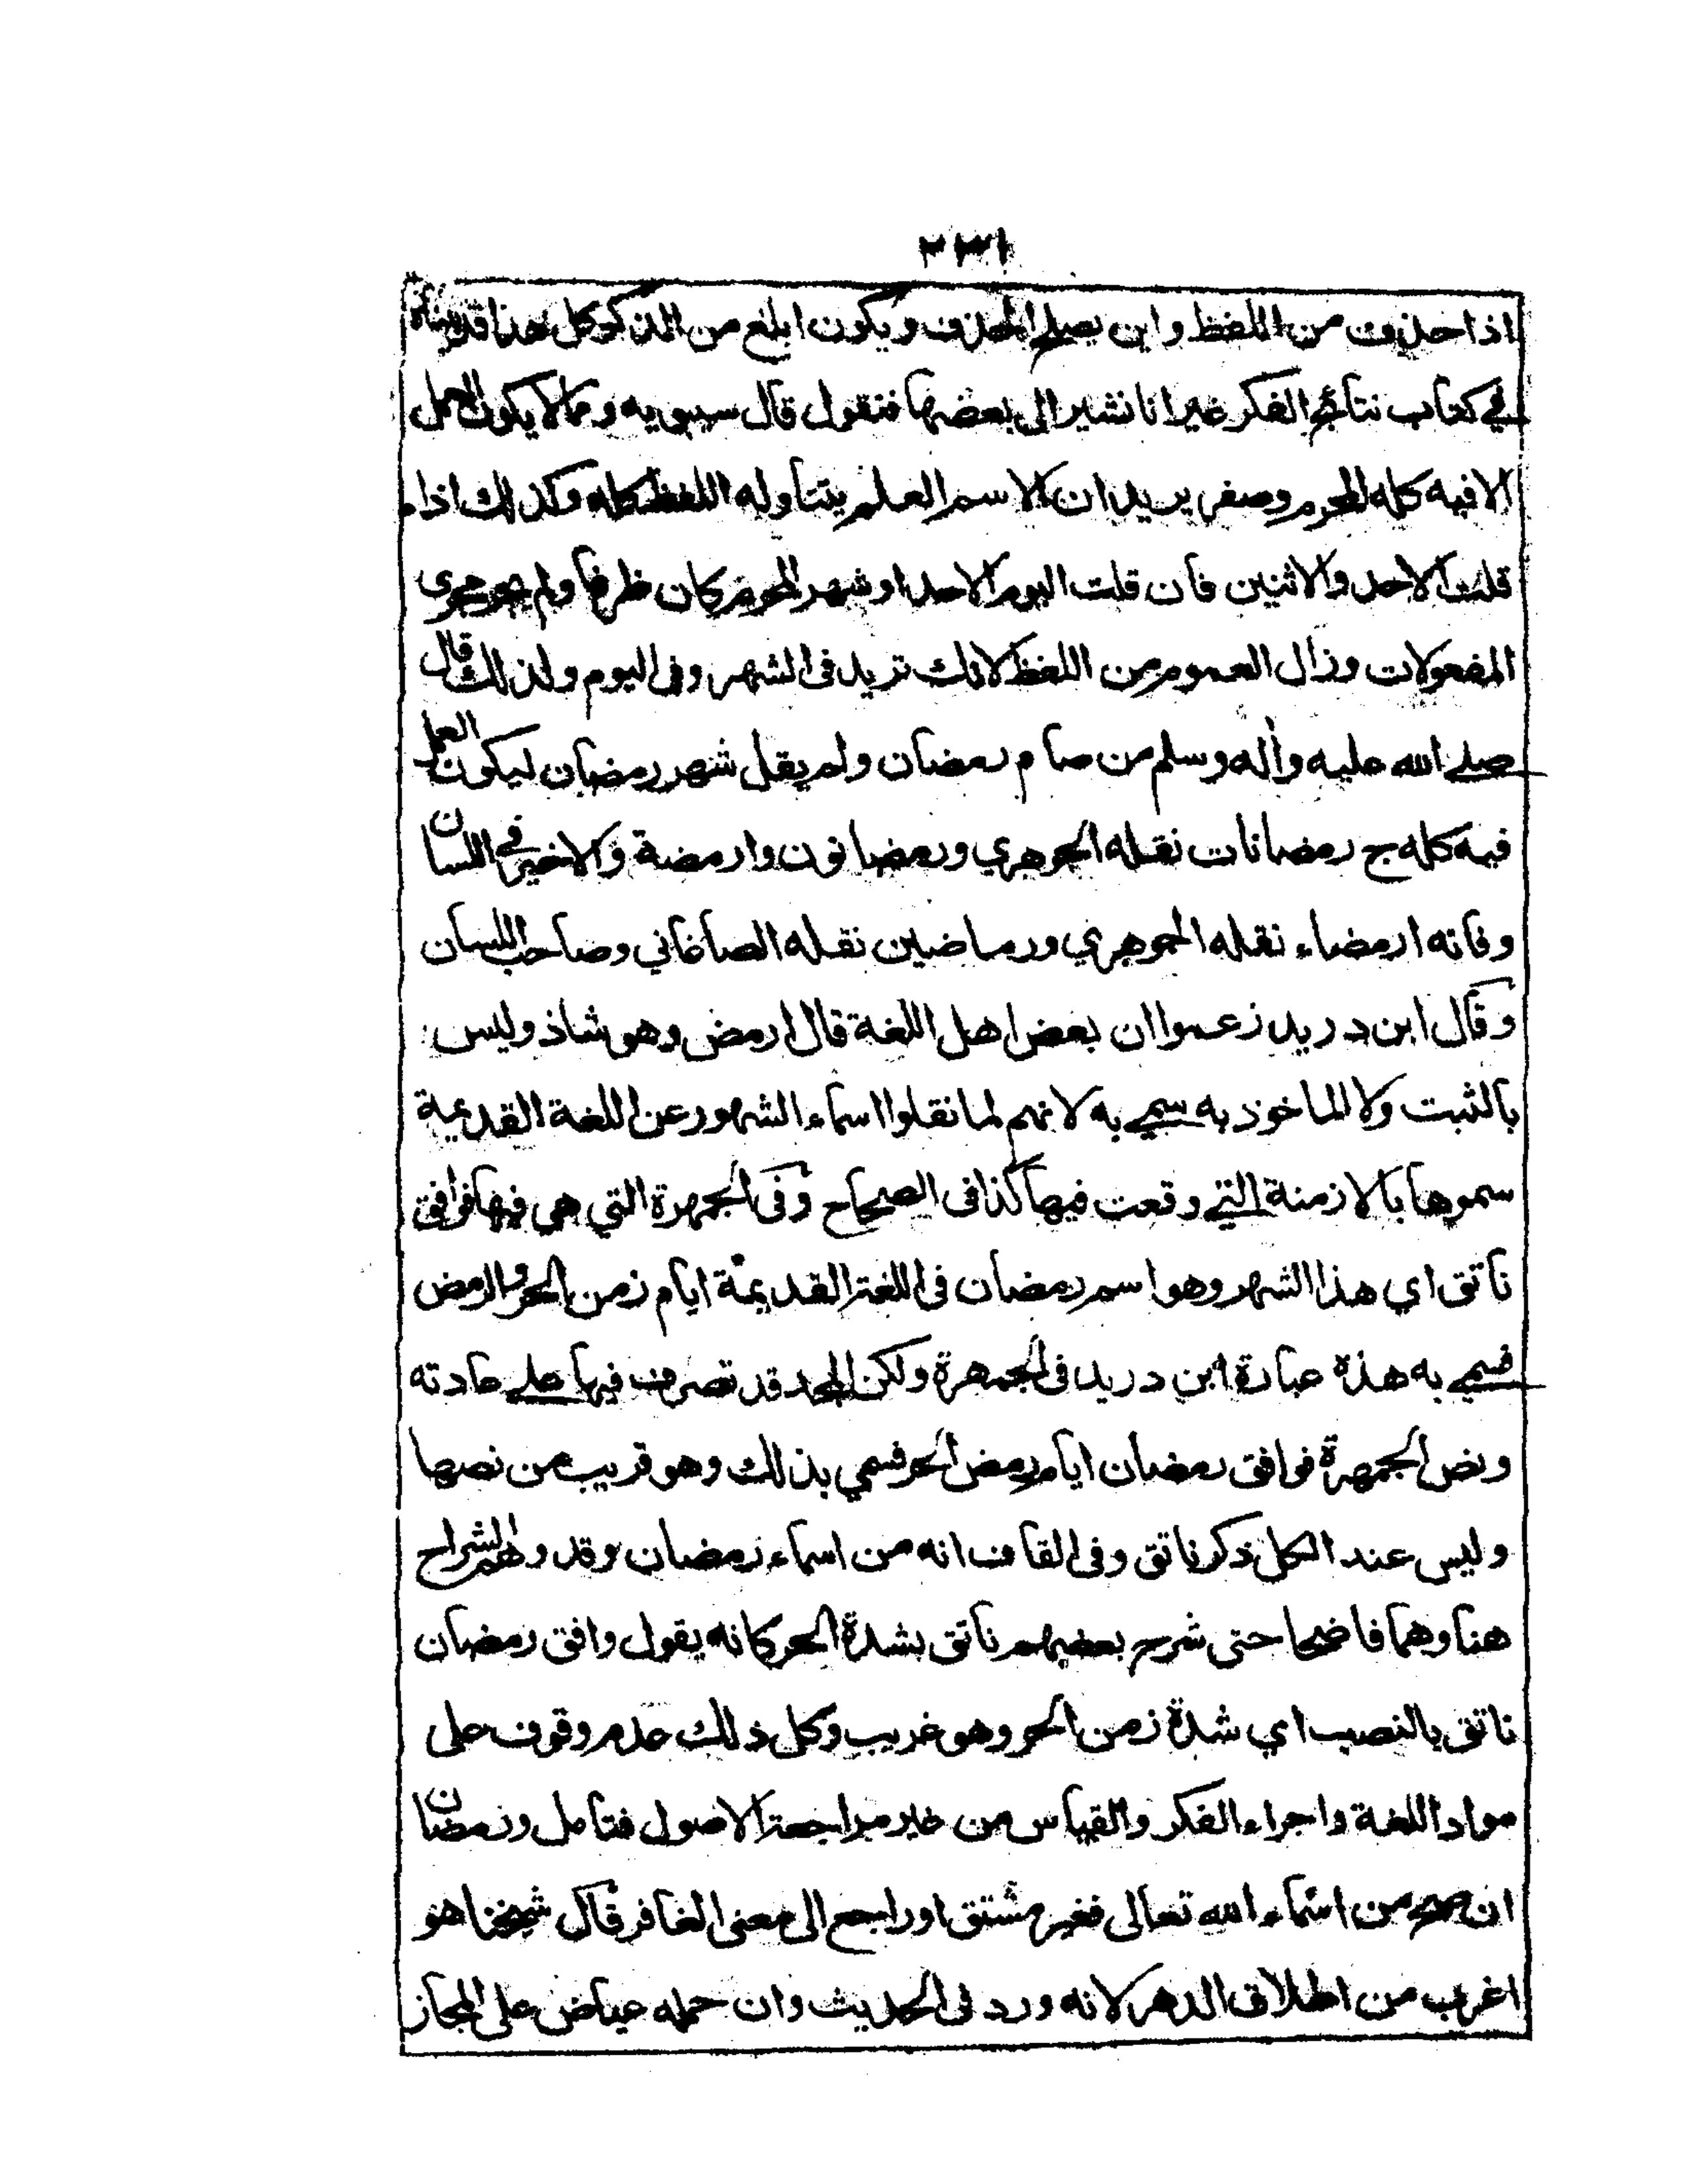 ٢٣١
اذا حذف من اللفظ واين يصلح الحذف ويكون ابلغ من الذكر كل هذا قد بيناه
في كتاب نتائج الفكر غير انا نشير الى بعضها فنقول قال سيبويه ومما لا يكون العمل
الا فيه كله المحرم وصفر يريد ان الاسم العلم يتناوله اللفظ كله وكذلك اذا
قلت الاحد والاثنين فان قلت اليوم الاحد او شهر المحرم كان ظرفا ولم يجر مجرى
المفعولات وزال العموم من اللفظ لانك تريد في الشهر وفي اليوم ولذلك قال
صلے الله عليه وآله وسلم من صام رمضان ولم يقل شهر رمضان ليكون العمل
فيه كله ج رمضانات نقله الجوهري ورمضانون وارمضة والاخير في اللسان
وفاته ارمضاء نقله الجوهري ورماضين نقله الصاغاني وصاحب اللسان
وقال ابن دريد زعموا ان بعض اهل اللغة قال ارمض وهو شاذ وليس
بالثبت ولا الماخوذ به سمے به لانهم لما نقلوا اسماء الشهور عن اللغة القديمة
سموها بالازمنة التے وقعت فيها كذا فى الصحاح وفى الجمهرة التي هي فيها فوافق
ناتق اي هذا الشهر وهو اسم رمضان فى اللغة القديمة ايام زمن الحر والرمض
فسمے به هذه عبارة ابن دريد فى الجمهرة ولكن المجد قد تصرف فيها علے عادته
ونص الجمهرة فوافق رمضان ايام رمض الحر فسمي بذلك وهو قريب من نصها
وليس عند الكل ذكر ناتق وفى القاف انه من اسماء رمضان وقد وهم الشراح
هنا وهما فاضحا حتى شرح بعضهم ناتق بشدة الحر كانه يقول وافق رمضان
ناتق بالنصب اي شدة زمن الحر وهو غريب وكل ذلك عدم وقوف على
مواد اللغة واجراء الفكر والقياس من غير مراجعة الاصول فتامل ورمضان
ان صح من اسماء الله تعالى فغير مشتق او راجع الى معنى الغافر قال شيخنا هو
اغرب من اطلاق الدهر لانه ورد فى الحديث وان حمله عياض على المجاز